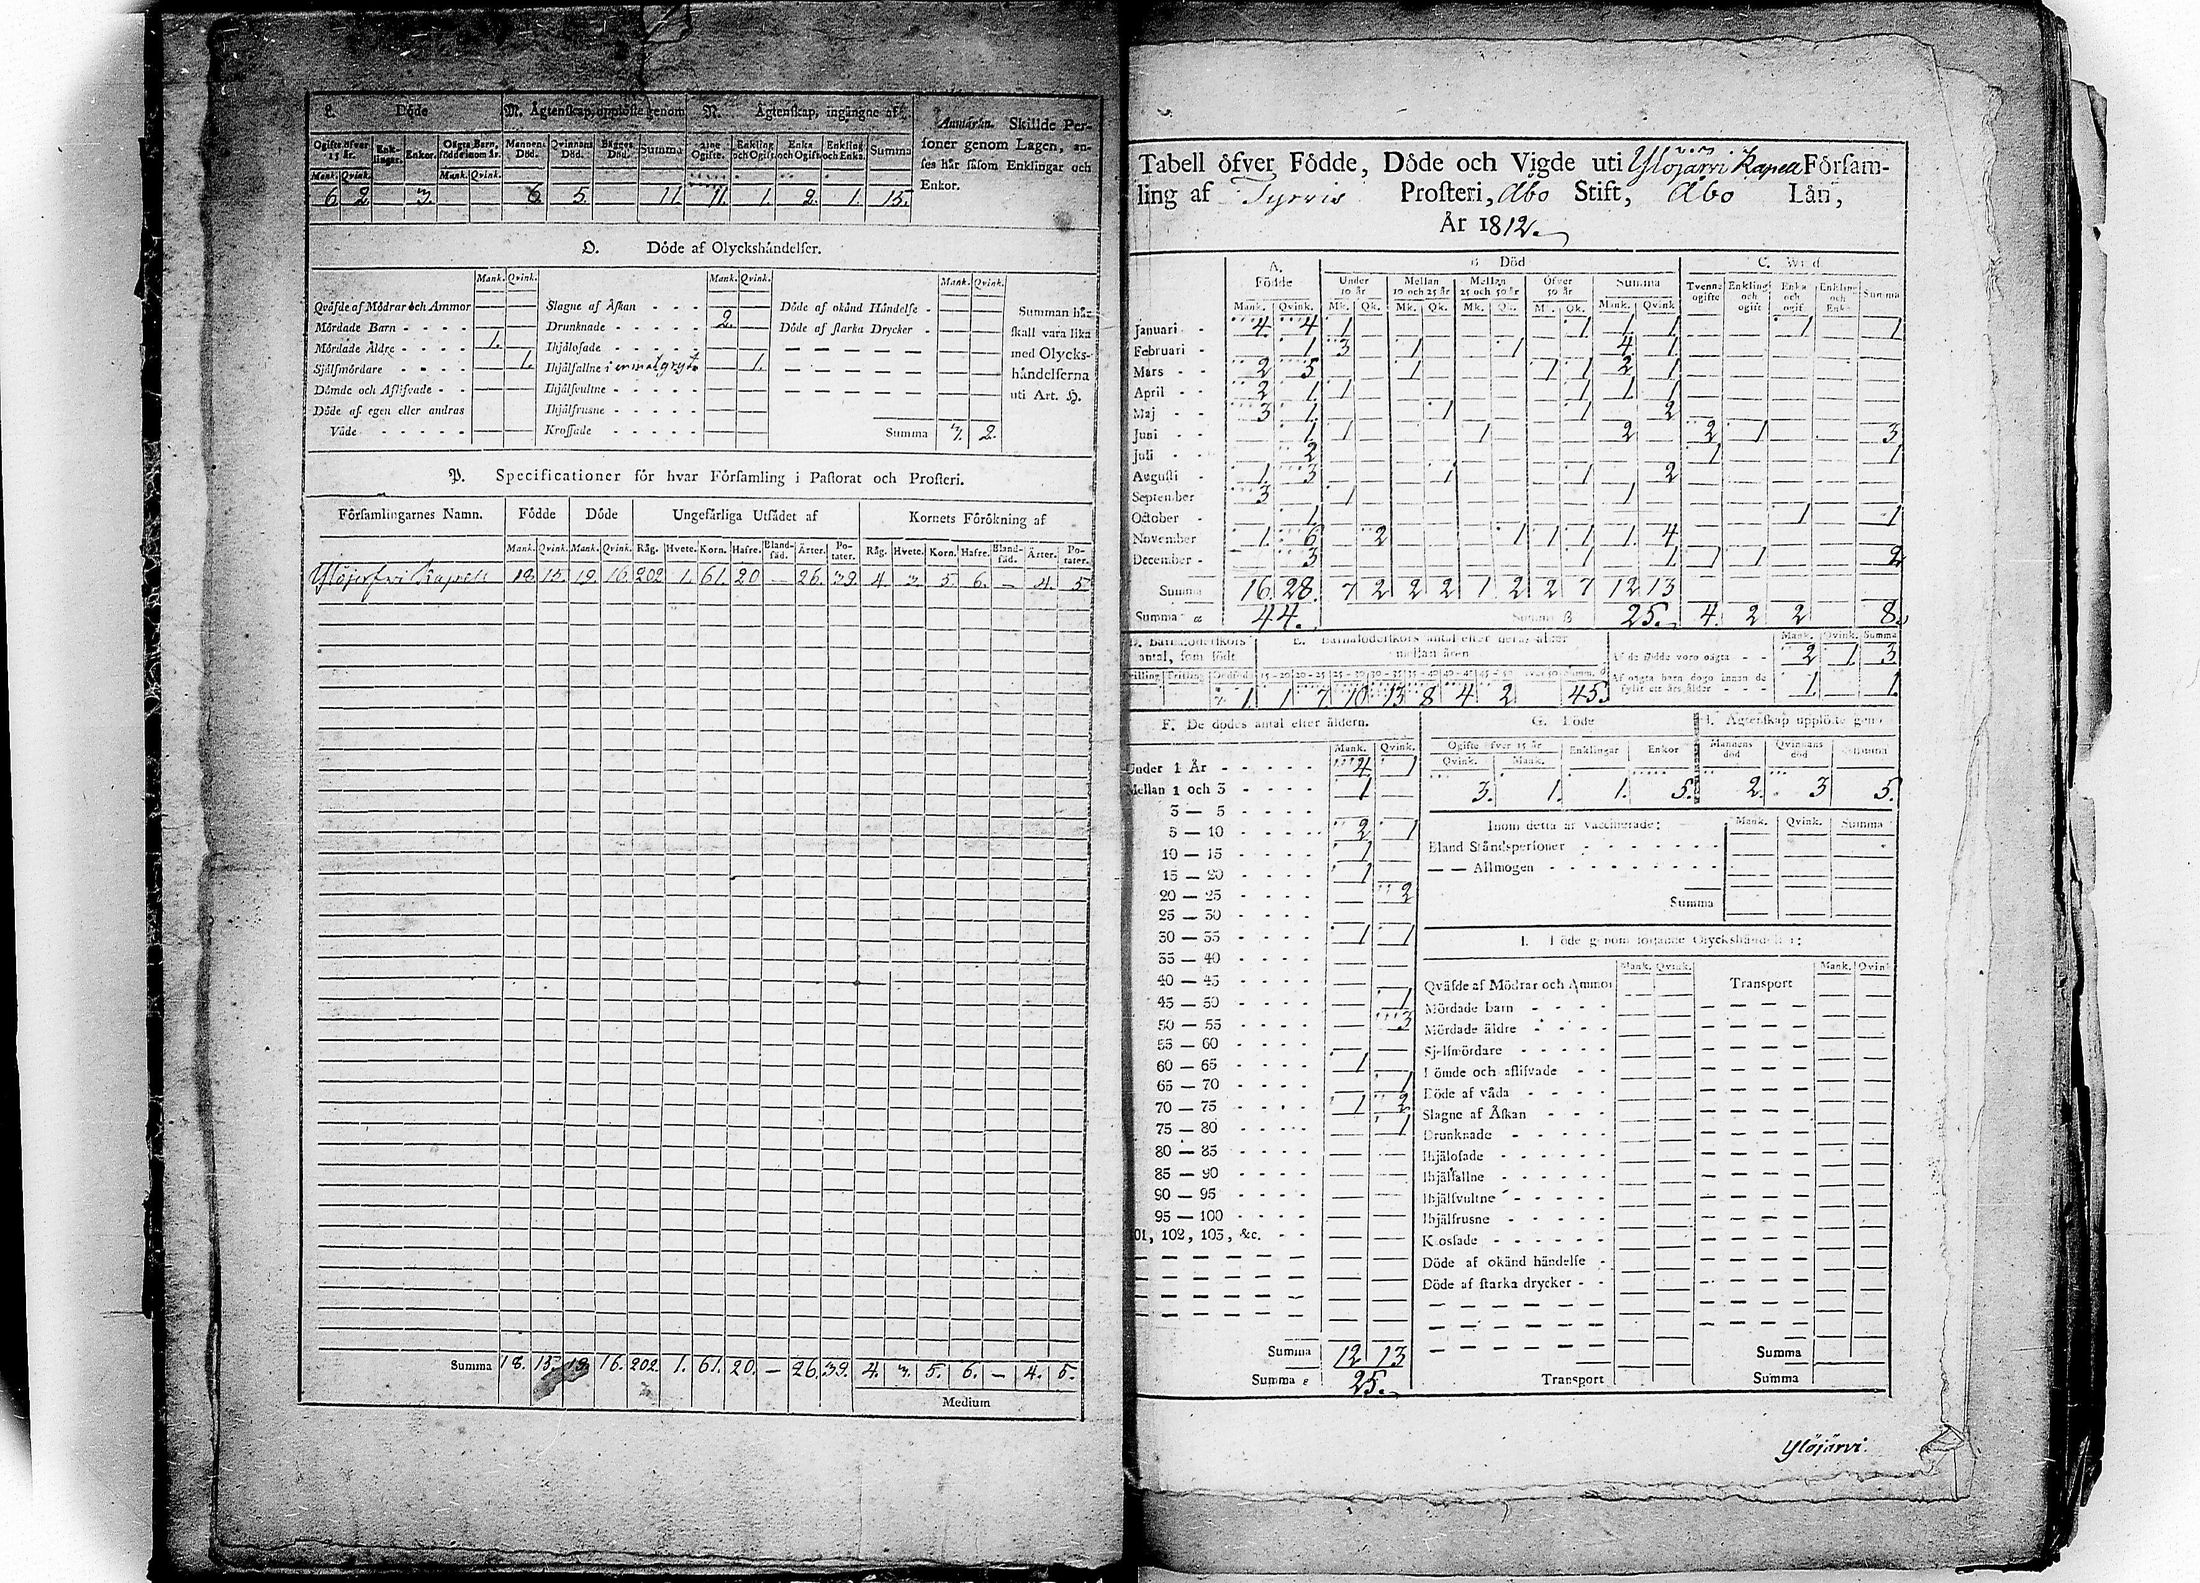 L. Döde
M. Ägtenskap, upplöste genom
N. Ägtenskap, ingångne af
Ogifte öfver 15 år. Enklingar. Enkor. Oägta Barn, födde inom år. Mannens Död. Qvinnans Död. Bägges Död. Summa Ogifte. Enkling och Ogift. Enka och Ogift. Enkling och Enka. Summa
Mank. Qvink. Mank. Qvink.
6 2 3. 6 5. 11 11. 1. 2. 1. 15.
Anmärkn. Skillde Per-
soner genom Lagen, an-
ses här såsom Enklingar och
Enkor.
O. Döde af Olyckshändelser.
Mank. Qvink. Mank. Qvink. Mank. Qvink.
Qväfde af Mödrar och Ammor
Mördade Barn - - - - 1.
Mördade Äldre - - - -
Självmördare - - - - 1.
Dömde och Aflifvade - -
Döde af egen eller andras
Våde - - - - -
Slagne af Åskan - - - -
Drunknade - - - - - 2.
Ihjälosade - - - - -
Ihjälfallne i 1.
Ihjälsvultne - - - - -
Ihjälfrusne - - - - -
Krossade - - - - -
Döde af okänd Händelse -
Döde af starka Drycker -
Summa 3. 2.
Summan här
skall vara lika
med Olycks-
händelserna
uti Art. H.
P. Specificationer för hvar Församling i Pastorat och Prosteri.
Församlingarnes Namn. Födde Döde Ungefärliga Utsädet af Kornets Förökning af
Mank. Qvink. Mank. Qvink. Råg. Hvete. Korn. Hafre. Bland-säd. Ärter. Po-tater. Råg. Hvete. Korn. Hafre. Bland-säd. Ärter. Po-tater.
Ylöjerfwi Kapell 18. 15. 19. 16. 202 1. 61. 20 — 26. 39 4. 3. 5. 6. — 4. 5
Summa 18. 15. 19. 16. 202. 1. 61. 20. — 26. 39. 4. 3. 5. 6. — 4. 5.
Medium
Tabell öfver Födde, Döde och Vigde uti Ylöjärvi Kapell Försam-
ling af Tyrvis Prosteri, Åbo Stift, Åbo Län,
År 1812.
A. Födde B. Död C. Wigd
Under 10 år Mellan 10 och 25 år Mellan 25 och 50 år Öfver 50 år Summa Tvenne ogifte Enkling och ogift Enka och ogift Enkling och Enka Summa
Mank. Qvink. Mk. Qk. Mk. Qk. Mk. Qk. M. Qk. Mank. Qvink.
Januari - 4 4 1 1 1 1 1 1
Februari - 1 3 1 1 4 1
Mars - - 2 5 1 1 1 2 1
April - - 2 1 1 1 1 1
Maj - - 3 1 1 1 2
Juni - - 1 1 1 2 2 1 3
Juli - - 2 1 1
Augusti - 1 3 1 1 2
September 3 1 1
October - 1 1 1
November 1 6 2 1 1 1 1 4
December - 3 1 1 1 1 2
Summa 16 28 7 2 2 2 1 2 2 7 12 13
Summa α 44. Summa β 25. 4. 2 2 8.
D. Barnaföderskors antal, som födt
E. Barnaföderskors antal efter deras ålder mellan åren
1. 1 7. 10 13 8 4 2 45.
Mank. Qvink. Summa
Af de födde voro oägta - - 2 1. 3
Af oägta barn dogo innan de
fyllt ett års ålder - - - 1. 1.
F. De dödes antal efter åldern.
Mank. Qvink.
Under 1 År - - - - - 4 1
Mellan 1 och 3 - - - - 1
3 — 5 - - - -
5 — 10 - - - - 2 1
10 — 15 - - - - 1
15 — 20 - - - - 1
20 — 25 - - - - 2
25 — 30 - - - -
30 — 35 - - - - 1 1
35 — 40 - - - -
40 — 45 - - - -
45 — 50 - - - - 1
50 — 55 - - - - 3
55 — 60 - - - -
60 — 65 - - - - 1
65 — 70 - - - - 1
70 — 75 - - - - 1 2
75 — 80 - - - - 1
80 — 85 - - - -
85 — 90 - - - -
90 — 95 - - - -
95 — 100 - - - -
101, 102, 103, &c. - -
Summa 12 13
Summa ε 25.
G. Döde
Ogifte öfver 15 år Enklingar Enkor
Qvink. Mank.
3. 1. 1. 5.
H. Ägtenskap upplöste genom
Mannens död Qvinnans död Summa
2. 3 5.
Inom detta år vaccinerade: Mank. Qvink. Summa
Bland Ståndspersoner - - - - - -
— — Allmogen - - - - - - - -
Summa
I. Döde genom följande Olyckshändelser:
Mank. Qvink. Mank. Qvink.
Qväfde af Mödrar och Ammor Transport
Mördade barn - - - -
Mördade äldre - - - -
Sjelfmördare - - - - -
Dömde och aflifvade - -
Döde af våda - - - -
Slagne af Åskan - - -
Drunknade - - - - -
Ihjälosade - - - - -
Ihjälfallne - - - - -
Ihjälsvultne - - - - -
Ihjälfrusne - - - - -
Krossade - - - - - -
Döde af okänd händelse -
Döde af starka drycker - -
Summa
Transport Summa
Ylöjärvi.